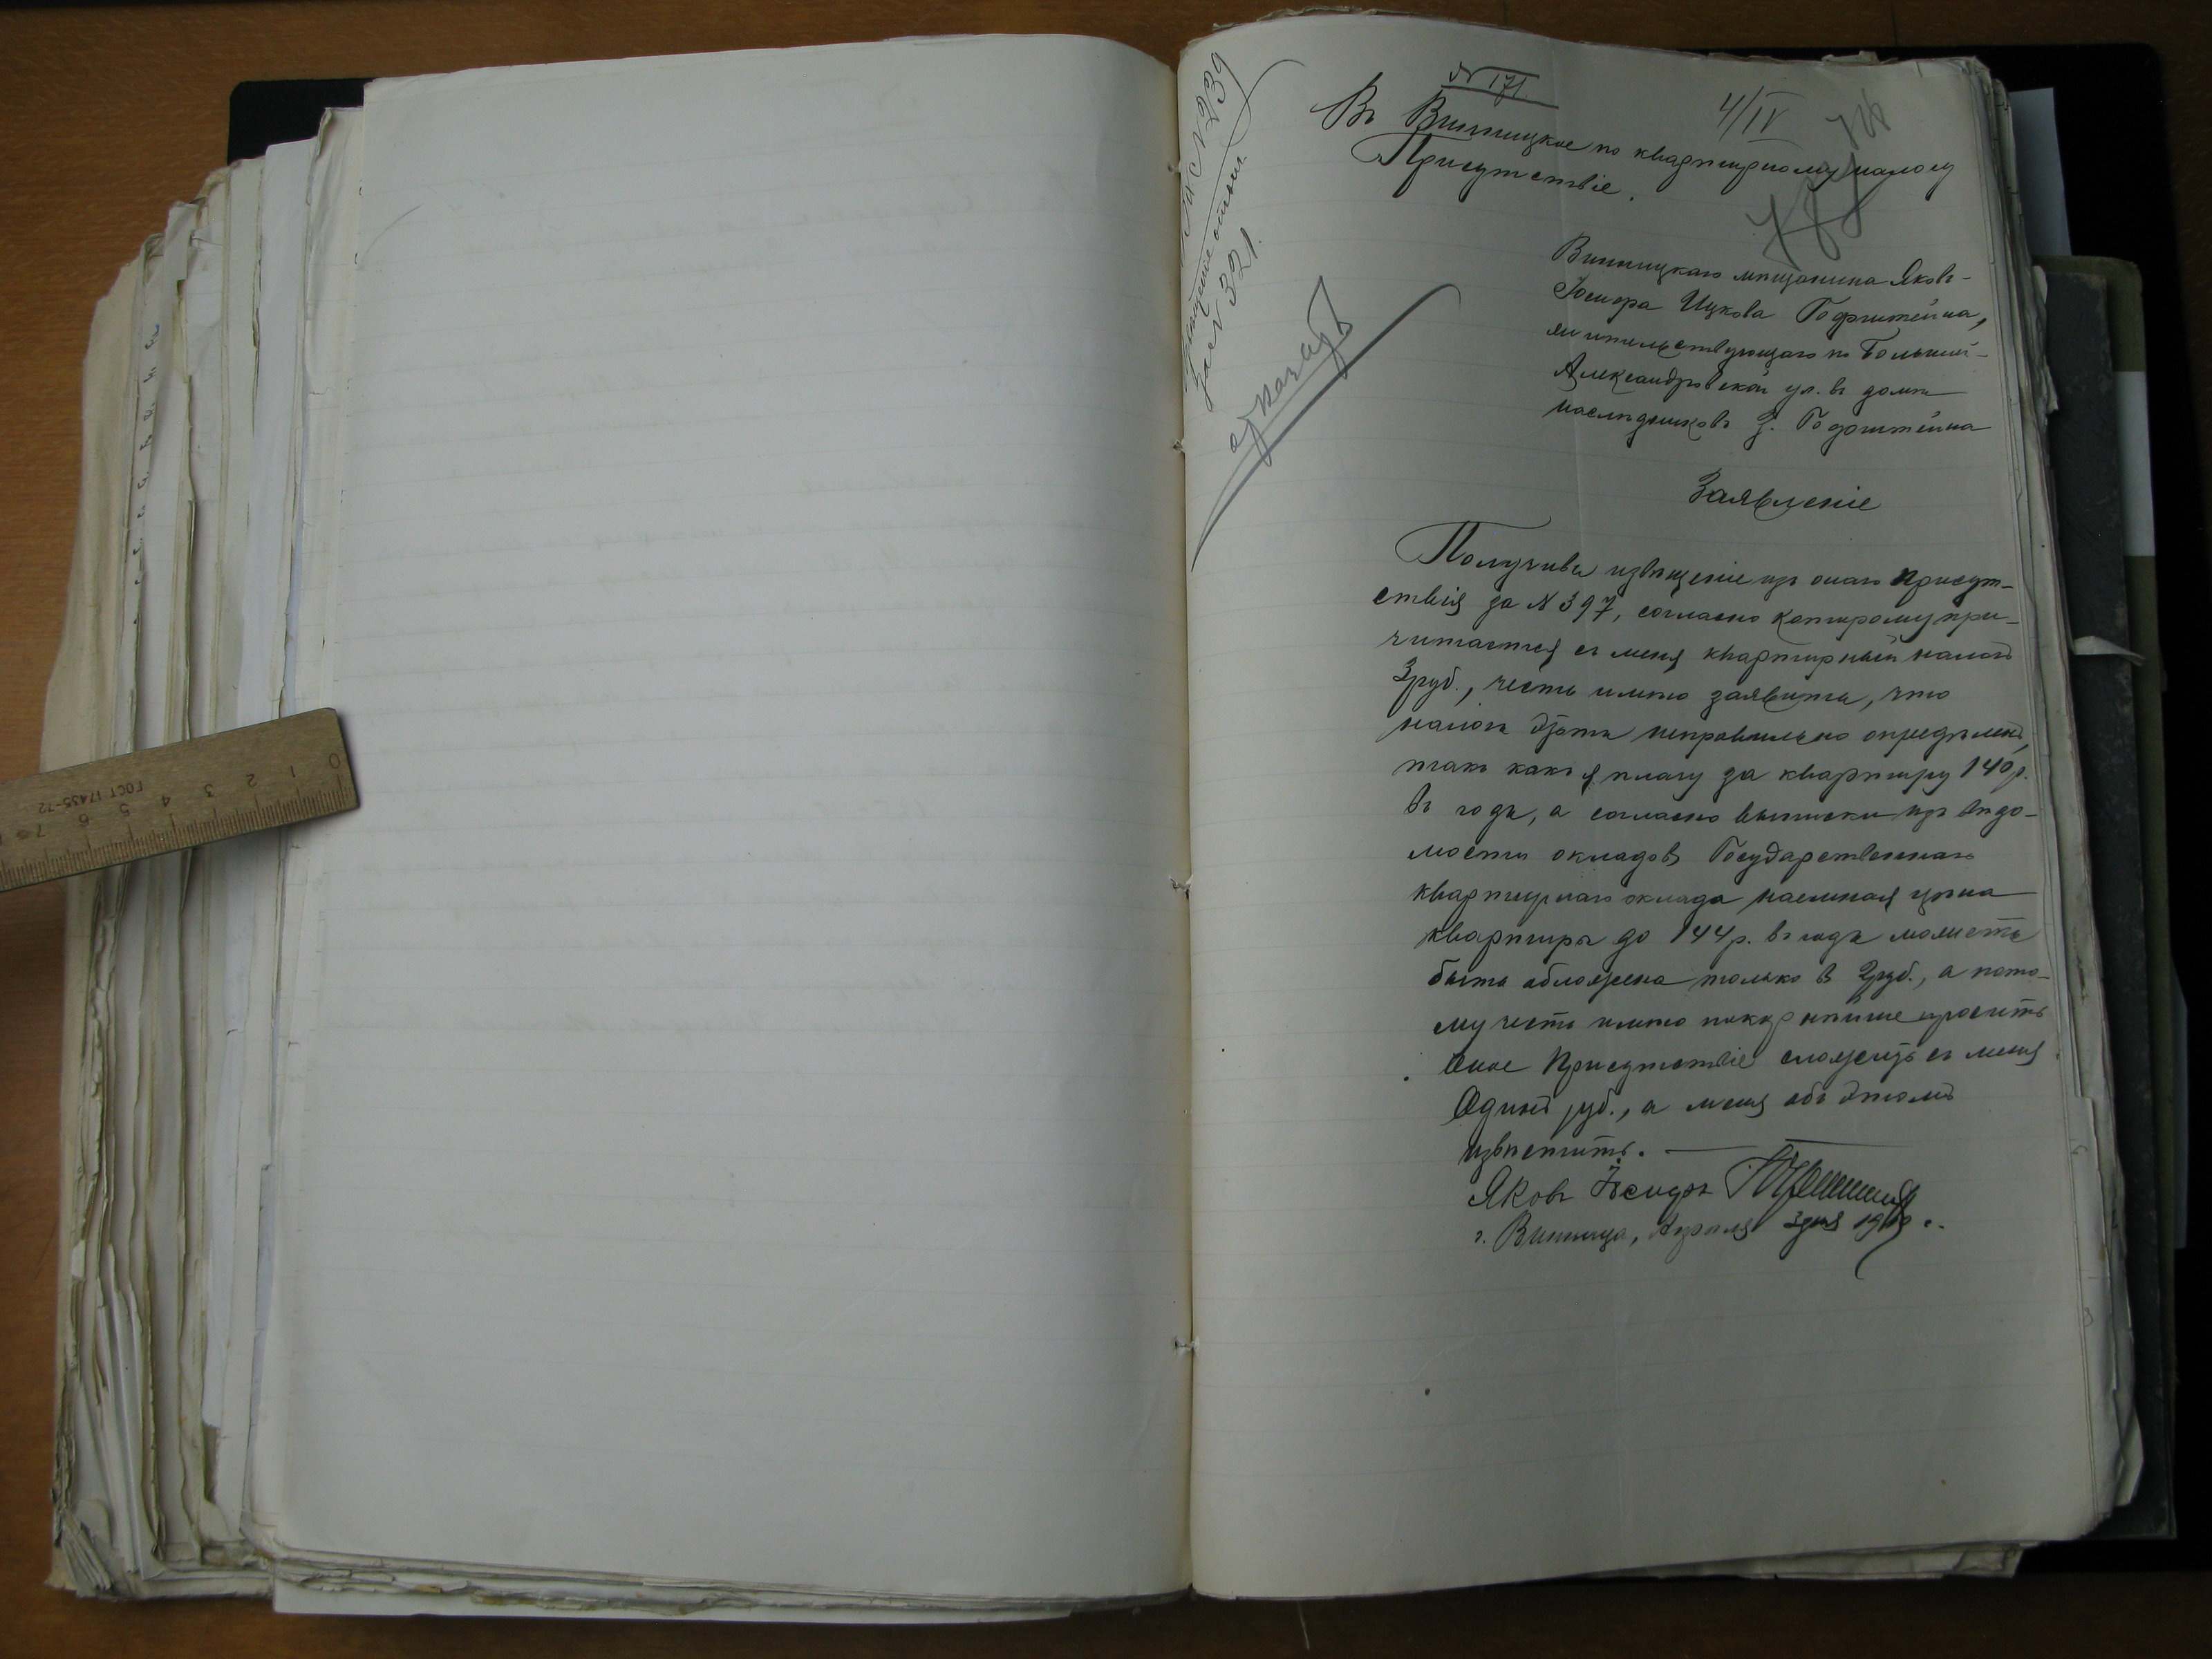 № 171
4/IV
Въ Винницкое по квартирному налогу
Присутствіе.
Винницкаго мѣщанина Яковъ-
Іосифа Ицкова Гофштейна,
жительствующаго по Больший-
Александровской ул. въ домѣ
наслѣдниковъ З. Гофштейна
Заявленіе
Получивъ извѣщеніе изъ онаго Присут-
ствія за № 397, согласно которому при-
читается съ меня квартирный налогъ
3 руб., честь имѣю заявить, что
налогъ этотъ неправильно опредѣленъ,
такъ какъ я плачу за квартиру 140 р.
въ годъ, а согласно выписки изъ вѣдо-
мости окладовъ Государственнаго
квартирнаго оклада наемная цѣна
квартиры до 144 р. въ годъ можетъ
быть обложена только въ 2 руб., а пото-
му честь имѣю покорнѣйше просить
оное Присутствіе сложить съ меня
Одинъ руб., а меня объ этомъ
извѣстить.
Яковъ Іосифъ Гофштейнъ
г. Винница, Апрѣля 3 дня 19 г.
№ 239
за № 321.
отказать
0 1 2 3 4 5 6 7
ГОСТ 17435-72